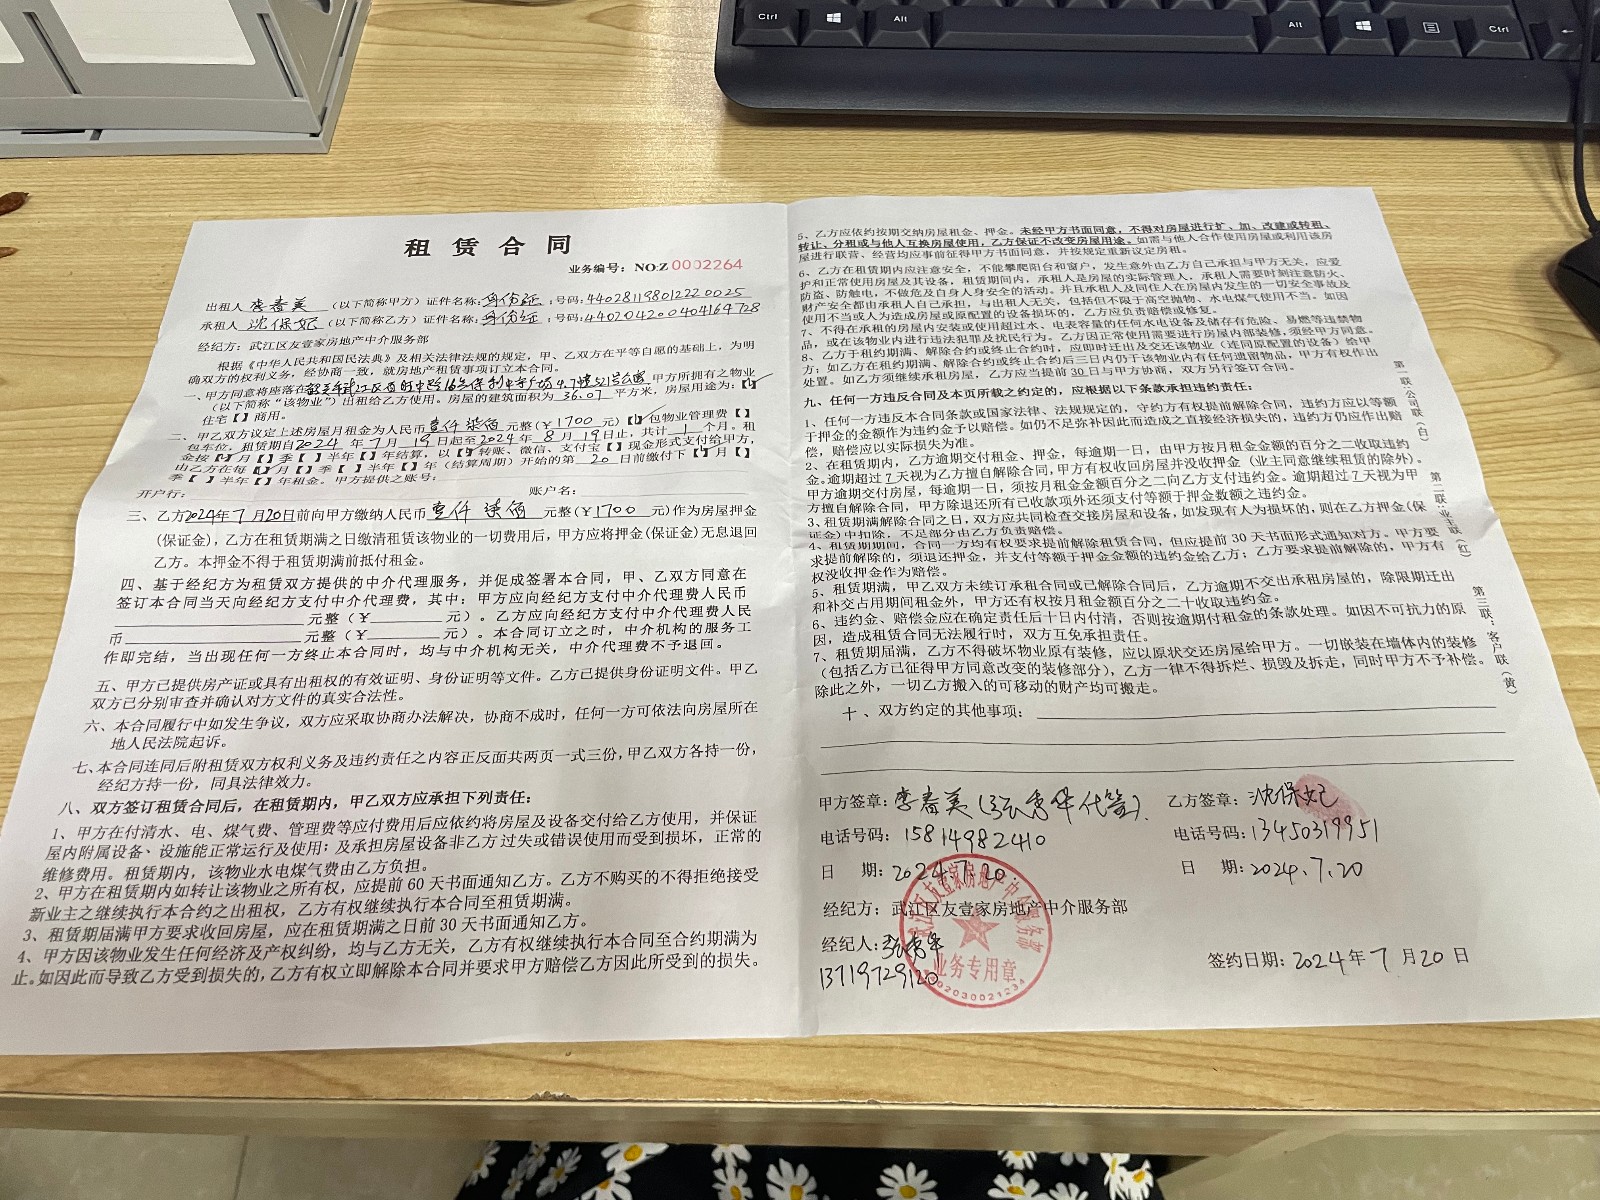 Ctrl
Alt
Alt
Ctrl
租赁合同
业务编号：NO:Z 0002264
出租人 李春美 （以下简称甲方）证件名称：身份证：号码：440281198012220025
承租人 沈保妃 （以下简称乙方）证件名称：身份证：号码：440204200404164728
经纪方：武江区友壹家房地产中介服务部
根据《中华人民共和国民法典》及相关法律法规的规定，甲、乙双方在平等自愿的基础上，为明
确双方的权利义务，经协商一致，就房地产租赁事项订立本合同。
一、甲方同意将座落在 甲方所拥有之物业
（以下简称“该物业”）出租给乙方使用。房屋的建筑面积为 36.07 平方米，房屋用途为：【✓】
住宅【 】商用。
二、甲乙双方议定上述房屋月租金为人民币 壹仟柒佰 元整（¥1700 元）【✓】包物业管理费【 】
包车位，租赁期自2024 年 7 月 19 日起至2024 年 8 月 19 日止，共计 1 个月。租
金按【✓】月【 】季【 】半年【 】年结算，以【✓】转账、微信、支付宝【 】现金形式支付给甲方，
由乙方在每【✓】月【 】季【 】半年【 】年（结算周期）开始的第 20 日前缴付下【✓】月【 】
季【 】半年【 】年租金。甲方提供之账号：
开户行： 账户名：
三、乙方2024年 7 月20日前向甲方缴纳人民币 壹仟 柒佰 元整（¥1700 元）作为房屋押金
（保证金），乙方在租赁期满之日缴清租赁该物业的一切费用后，甲方应将押金（保证金）无息退回
乙方。本押金不得于租赁期满前抵付租金。
四、基于经纪方为租赁双方提供的中介代理服务，并促成签署本合同，甲、乙双方同意在
签订本合同当天向经纪方支付中介代理费，其中：甲方应向经纪方支付中介代理费人民币
元整（¥ 元）。乙方应向经纪方支付中介代理费人民
币 元整（¥ 元）。本合同订立之时，中介机构的服务工
作即完结，当出现任何一方终止本合同时，均与中介机构无关，中介代理费不予退回。
五、甲方已提供房产证或具有出租权的有效证明、身份证明等文件。乙方已提供身份证明文件。甲乙
双方已分别审查并确认对方文件的真实合法性。
六、本合同履行中如发生争议，双方应采取协商办法解决，协商不成时，任何一方可依法向房屋所在
地人民法院起诉。
七、本合同连同后附租赁双方权利义务及违约责任之内容正反面共两页一式三份，甲乙双方各持一份，
经纪方持一份，同具法律效力。
八、双方签订租赁合同后，在租赁期内，甲乙双方应承担下列责任：
1、甲方在付清水、电、煤气费、管理费等应付费用后应依约将房屋及设备交付给乙方使用，并保证
屋内附属设备、设施能正常运行及使用；及承担房屋设备非乙方过失或错误使用而受到损坏，正常的
维修费用。租赁期内，该物业水电煤气费由乙方负担。
2、甲方在租赁期内如转让该物业之所有权，应提前 60 天书面通知乙方。乙方不购买的不得拒绝接受
新业主之继续执行本合约之出租权，乙方有权继续执行本合同至租赁期满。
3、租赁期届满甲方要求收回房屋，应在租赁期满之日前 30 天书面通知乙方。
4、甲方因该物业发生任何经济及产权纠纷，均与乙方无关，乙方有权继续执行本合同至合约期满为
止。如因此而导致乙方受到损失的，乙方有权立即解除本合同并要求甲方赔偿乙方因此所受到的损失。
5、乙方应依约按期交纳房屋租金、押金。未经甲方书面同意，不得对房屋进行扩、加、改建或转租、
转让、分租或与他人互换房屋使用，乙方保证不改变房屋用途。如需与他人合作使用房屋或利用该房
屋进行联营、经营均应事前征得甲方书面同意，并按规定重新议定房租。
6、乙方在租赁期内应注意安全，不能攀爬阳台和窗户，发生意外由乙方自己承担与甲方无关，应爱
护和正常使用房屋及其设备，租赁期间内，承租人是房屋的实际管理人，承租人需要时刻注意防火、
防盗、防触电，不做危及自身人身安全的活动。并且承租人及同住人在房屋内发生的一切安全事故及
财产安全都由承租人自己承担，与出租人无关，包括但不限于高空抛物、水电煤气使用不当。如因
使用不当或人为造成房屋或原配置的设备损坏的，乙方应负责赔偿或修复。
7、不得在承租的房屋内安装或使用超过水、电表容量的任何水电设备及储存有危险、易燃等违禁物
品，或在该物业内进行违法犯罪及扰民行为。乙方因正常使用需要进行房屋内部装修，须经甲方同意。
8、乙方于租约期满、解除合约或终止合约时，应即时迁出及交还该物业（连同原配置的设备）给甲
方；如乙方在租约期满、解除合约或终止合约后三日内仍于该物业内有任何遗留物品，甲方有权作出
处置。如乙方须继续承租房屋，乙方应当提前 30 日与甲方协商，双方另行签订合同。
九、任何一方违反合同及本页所载之约定的，应根据以下条款承担违约责任：
1、任何一方违反本合同条款或国家法律、法规规定的，守约方有权提前解除合同，违约方应以等额
于押金的金额作为违约金予以赔偿。如仍不足弥补因此而造成之直接经济损失的，违约方仍应作出赔
偿，赔偿应以实际损失为准。
2、在租赁期内，乙方逾期交付租金、押金，每逾期一日，由甲方按月租金金额的百分之二收取违约
金。逾期超过 7 天视为乙方擅自解除合同，甲方有权收回房屋并没收押金（业主同意继续租赁的除外）。
甲方逾期交付房屋，每逾期一日，须按月租金金额百分之二向乙方支付违约金。逾期超过 7 天视为甲
方擅自解除合同，甲方除退还所有已收款项外还须支付等额于押金数额之违约金。
3、租赁期满解除合同之日，双方应共同检查交接房屋和设备，如发现有人为损坏的，则在乙方押金（保
证金）中扣除，不足部分由乙方负责赔偿。
4、租赁期期间，合同一方均有权要求提前解除租赁合同，但应提前 30 天书面形式通知对方。甲方要
求提前解除的，须退还押金，并支付等额于押金金额的违约金给乙方；乙方要求提前解除的，甲方有
权没收押金作为赔偿。
5、租赁期满，甲乙双方未续订承租合同或已解除合同后，乙方逾期不交出承租房屋的，除限期迁出
和补交占用期间租金外，甲方还有权按月租金额百分之二十收取违约金。
6、违约金、赔偿金应在确定责任后十日内付清，否则按逾期付租金的条款处理。如因不可抗力的原
因，造成租赁合同无法履行时，双方互免承担责任。
7、租赁期届满，乙方不得破坏物业原有装修，应以原状交还房屋给甲方。一切嵌装在墙体内的装修
（包括乙方已征得甲方同意改变的装修部分），乙方一律不得拆烂、损毁及拆走，同时甲方不予补偿。
除此之外，一切乙方搬入的可移动的财产均可搬走。
十、双方约定的其他事项：
第一联：公司联（白）
第二联：业主联（红）
第三联：客户联（黄）
甲方签章：李春美（张秀华代签）. 乙方签章：沈保妃
电话号码：15814982410 电话号码：13450319951
日 期：2024.7.20. 日 期：2024.7.20
经纪方：武江区友壹家房地产中介服务部
经纪人：张秀华
13719729120
签约日期：2024 年 7 月 20 日
武江区友壹家房地产中介服务部
业务专用章